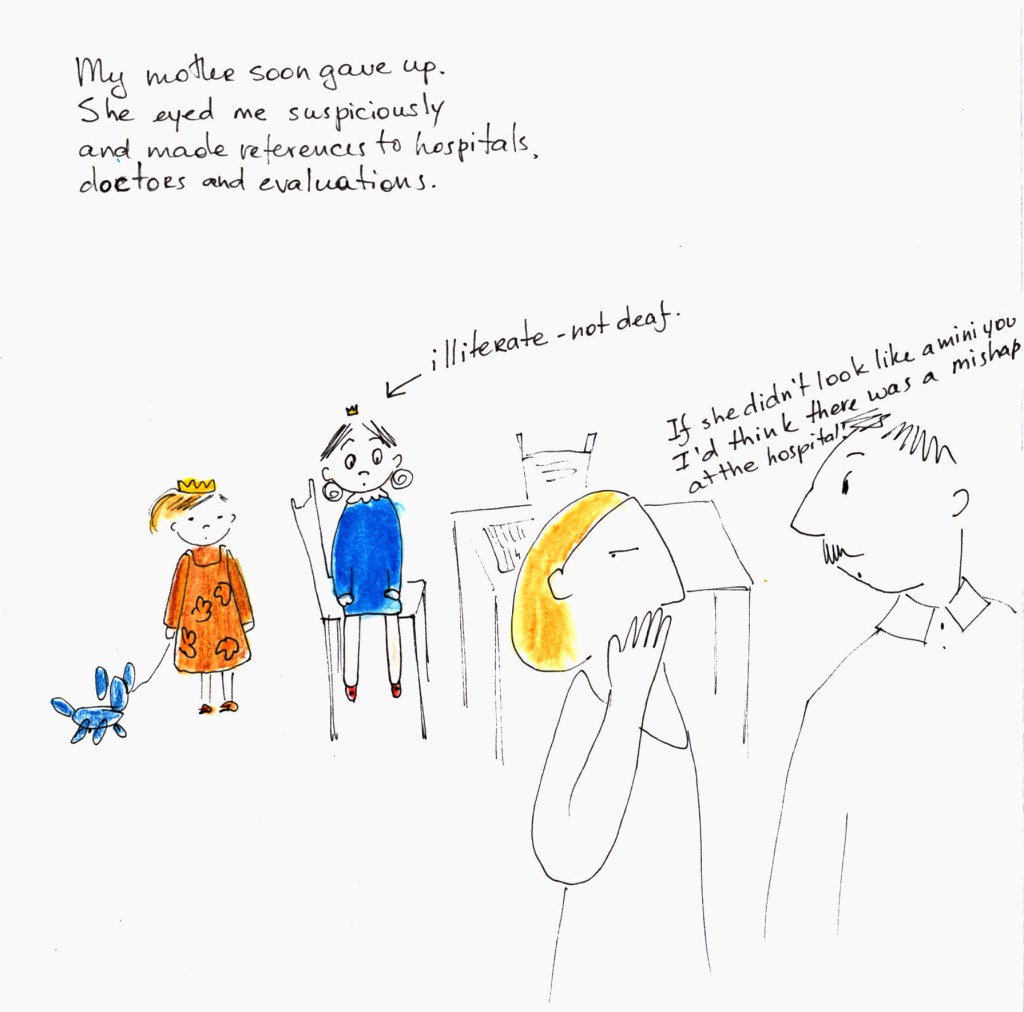 My mother soon gave up.
She eyed me suspiciously
and made references to hospitals,
doctors and evaluations.
illiterate - not deaf.
If she didn't look like a mini you
I'd think there was a mishap
at the hospital!